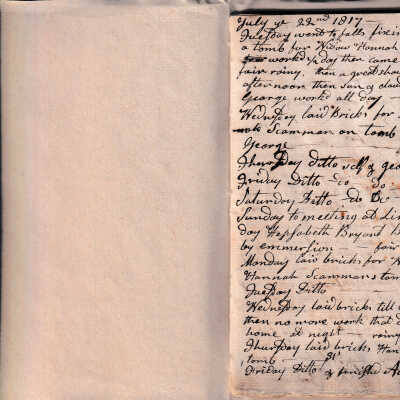 July ye 22nd 1817 —
Tuesday went to falls fixin
a tomb for Widow Hannah
work'd ½ day then came
fair rainy. then a great show
afternoon then Sun & clou
George work'd all day —
Wednesday laid Bricks for
Scamman on tomb
George
Thursday ditto self & geo
Friday Ditto — do do
Saturday Ditto — do do —
Sunday to meeting at Lim
day Hepsabeth Bryant B
by emmersion — fair
Monday laid bricks for H
Hannah Scammans tom
Tuesday Ditto
Wednesday laid bricks till
then no more work that d
home at night — rainy
Thursday laid bricks Han
tomb — 31
Friday Ditto & finished